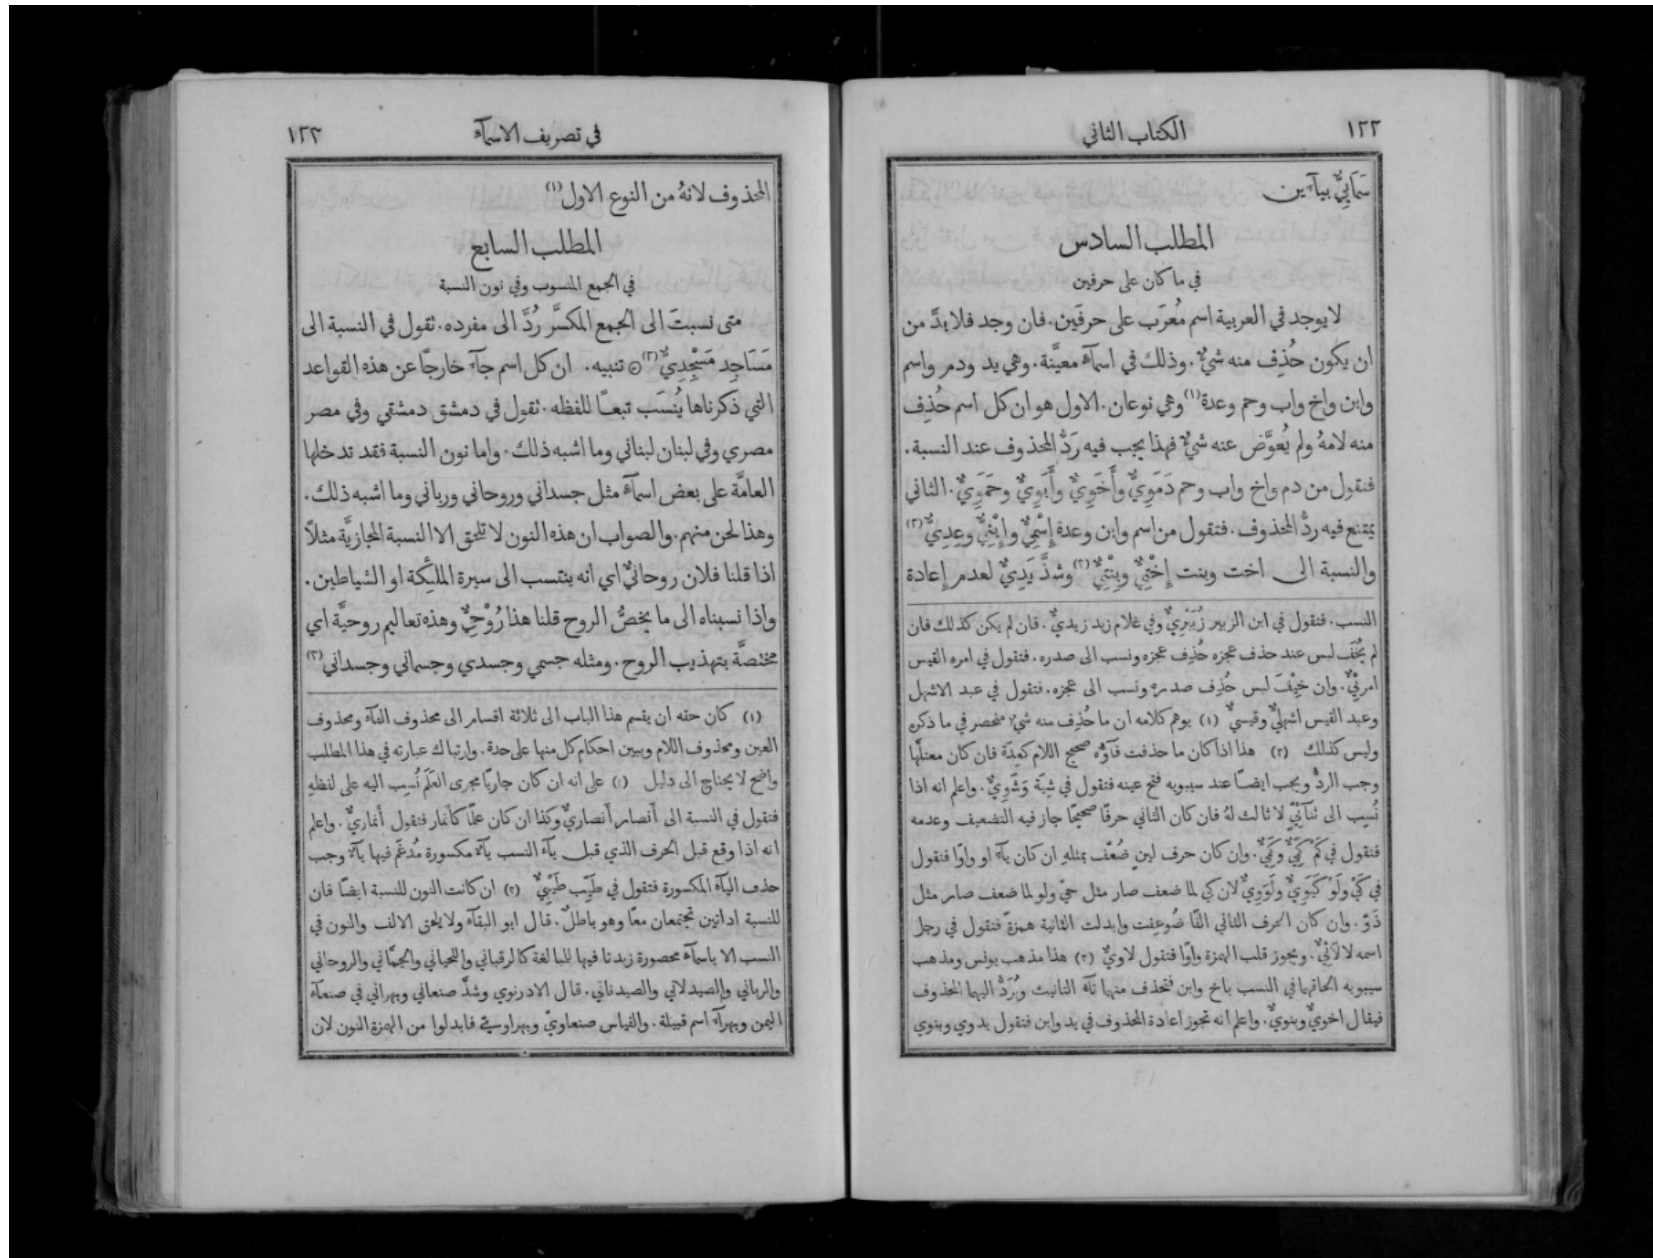 ١٢٢
الكتاب الثاني
سَمَآئِيٌّ بيآءَين
المطلب السادس
في ما كان على حرفين
لا يوجد في العربية اسم مُعرَب على حرفَين. فان وجد فلا بدَّ من
ان يكون حُذِف منه شيءٌ. وذلك في اسمآءٍ معيَّنة. وهي يد ودم واسم
وابن واخ واب وحم وعدة(١) وهي نوعان. الاول هو ان كل اسم حُذِف
منه لامهُ ولم يُعوَّض عنه شيءٌ فهذا يجب فيه رَدُّ المحذوف عند النسبة.
فنقول من دم واخ واب وحم دَمَوِيٌّ وأَخَوِيٌّ وأَبَوِيٌّ وحَمَوِيٌّ. الثاني
يمتنع فيه ردُّ المحذوف. فتقول من اسم وابن وعدة إِسْمِيٌّ وإِبْنِيٌّ وعِدِيٌّ(٢)
والنسبة الى اخت وبنت إِخْتِيٌّ وبِنْتِيٌّ(٣) وشذَّ يَدِيٌّ لعدم إِعادة
النسب. فتقول في ابن الزبير زُبَيْرِيٌّ وفي غلام زيد زيديٌّ. فان لم يكن كذلك فان
لم يُخَف لبس عند حذف عجزه حُذِف عجزه ونسب الى صدره. فتقول في امره القيس
امرئِيٌّ. وان خِيْفَ لبس حُذِف صدره ونسب الى عجزه. فتقول في عبد الاشهل
وعبد القيس اشهليٌّ وقيسيٌّ (١) يوهم كلامه ان ما حُذِف منه شيءٌ منحصر في ما ذكره
وليس كذلك (٢) هذا اذا كان ما حذفت فآؤه صحيح اللام كعِدَة فان كان معتلَّها
وجب الردُّ ويجب ايضًا عند سيبويه فتح عينه فتقول في شِيَة وَشَوِيٌّ. واعلم انه اذا
نُسِب الى ثنآئِيٍّ لا ثالث لهُ فان كان الثاني حرفًا صحيحًا جاز فيه التضعيف وعدمه
فتقول في كَمْ كَمِّيٌّ وكَمِيٌّ. وان كان حرف لين ضُعّف بمثلهِ ان كان يآءً او واوًا فتقول
في كَيْ ولَوْ كَيَوِيٌّ ولَوَوِيٌّ لان كي لما ضعف صار مثل حيّ ولو لما ضعف صار مثل
دَوّ. وان كان الحرف الثاني الفًا ضُوعِفت وابدلت الثانية همزةً فتقول في رجل
اسمه لا لآئِيٌّ. ويجوز قلب الهمزة واوًا فتقول لاويٌّ (٣) هذا مذهب يونس ومذهب
سيبويه الحاقهما في النسب باخ وابن فتحذف منهما تآء التانيث ويُرَدُّ اليهما المحذوف
فيقال اخويٌّ وبنويٌّ. واعلم انه تجوز اعادة المحذوف في يد وابن فتقول يدوي وبنوي
في تصريف الاسمآء
١٢٣
المحذوف لانهُ من النوع الاول(١)
المطلب السابع
في الجمع المنسوب وفي نون النسبة
متى نسبتَ الى الجمع المكسَّر رُدَّ الى مفرده. تقول في النسبة الى
مَسَاجِد مَسْجِدِيٌّ(٢) ⊙ تنبيه. ان كل اسم جآءَ خارجًا عن هذه القواعد
التي ذكرناها يُنسَب تبعًا للفظه. تقول في دمشق دمشقي وفي مصر
مصري وفي لبنان لبناني وما اشبه ذلك. واما نون النسبة فقد تدخلها
العامَّة على بعض اسمآءٍ مثل جسداني وروحاني ورباني وما اشبه ذلك.
وهذا لحن منهم. والصواب ان هذه النون لا تلحق الا النسبة المجازيَّة مثلًا
اذا قلنا فلان روحانيٌّ اي انه ينتسب الى سيرة الملئِكة او الشياطين.
واذا نسبناه الى ما يخصُّ الروح قلنا هذا رُوْحِيٌّ وهذه تعاليم روحيَّة اي
مختصَّة بتهذيب الروح. ومثله جسمي وجسدي وجسماني وجسداني(٣)
(١) كان حقه ان يقسم هذا الباب الى ثلاثة اقسام الى محذوف الفآء ومحذوف
العين ومحذوف اللام ويبين احكام كل منها على حدة. وارتباك عبارته في هذا المطلب
واضح لا يحتاج الى دليل (٢) على انه ان كان جاريًا مجرى العَلَم نُسِب اليه على لفظهِ
فتقول في النسبة الى أَنصار أَنصاريٌّ وكذا ان كان علمًا كأَنمار فتقول أَنماريٌّ. واعلم
انه اذا وقع قبل الحرف الذي قبل يآء النسب يآءٌ مكسورة مُدغَم فيها يآءٌ وجب
حذف اليآء المكسورة فتقول في طَيِّب طَيْبِيٌّ (٣) ان كانت النون للنسبة ايضًا فان
للنسبة اداتين تجتمعان معًا وهو باطلٌ. قال ابو البقآء ولا يلحق الالف والنون في
النسب الا باسمآءٍ محصورة زيدتا فيها للمبالغة كالرقباني واللحياني والجمَّاني والروحاني
والرباني والصيدلاني والصيدناني. قال الادرنوي وشذَّ صنعاني وبهراني في صنعآء
اليمن وبهرآء اسم قبيلة. والقياس صنعاويّ وبهراويّ فابدلوا من الهمزة النون لان